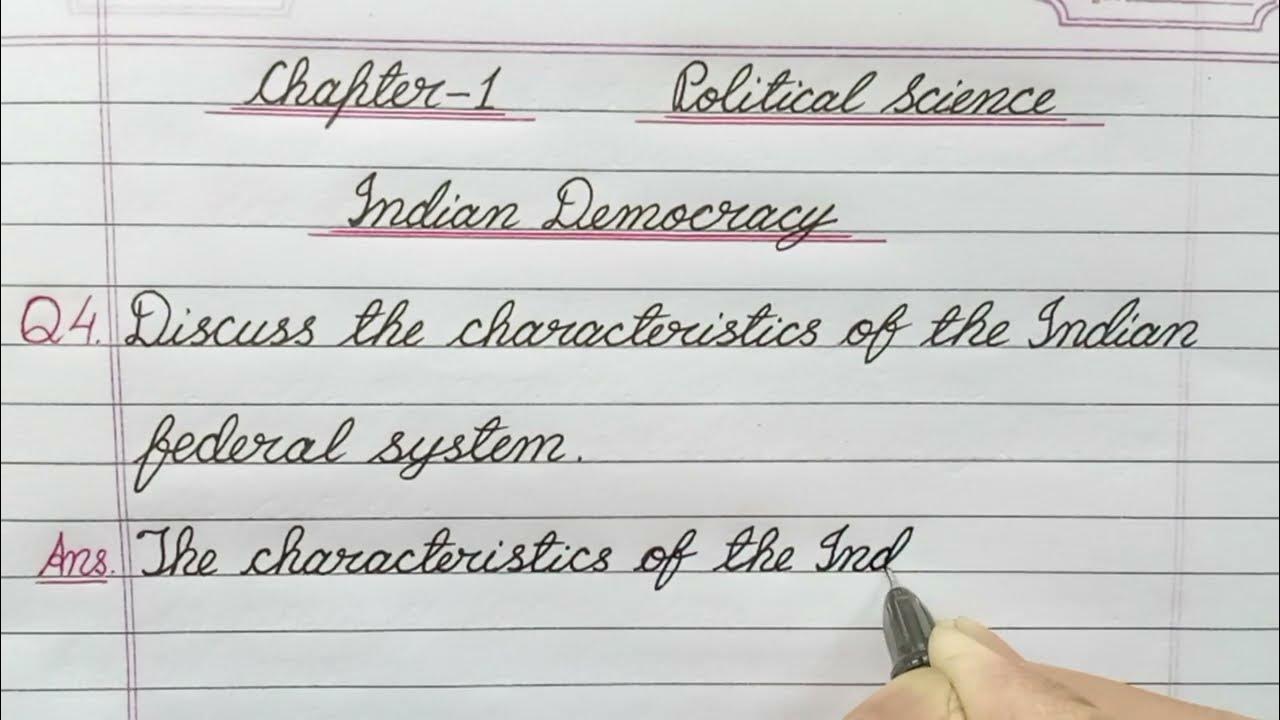 Chapter-1 Political Science
Indian Democracy
Q4. Discuss the characteristics of the Indian
federal system.
Ans. The characteristics of the Ind